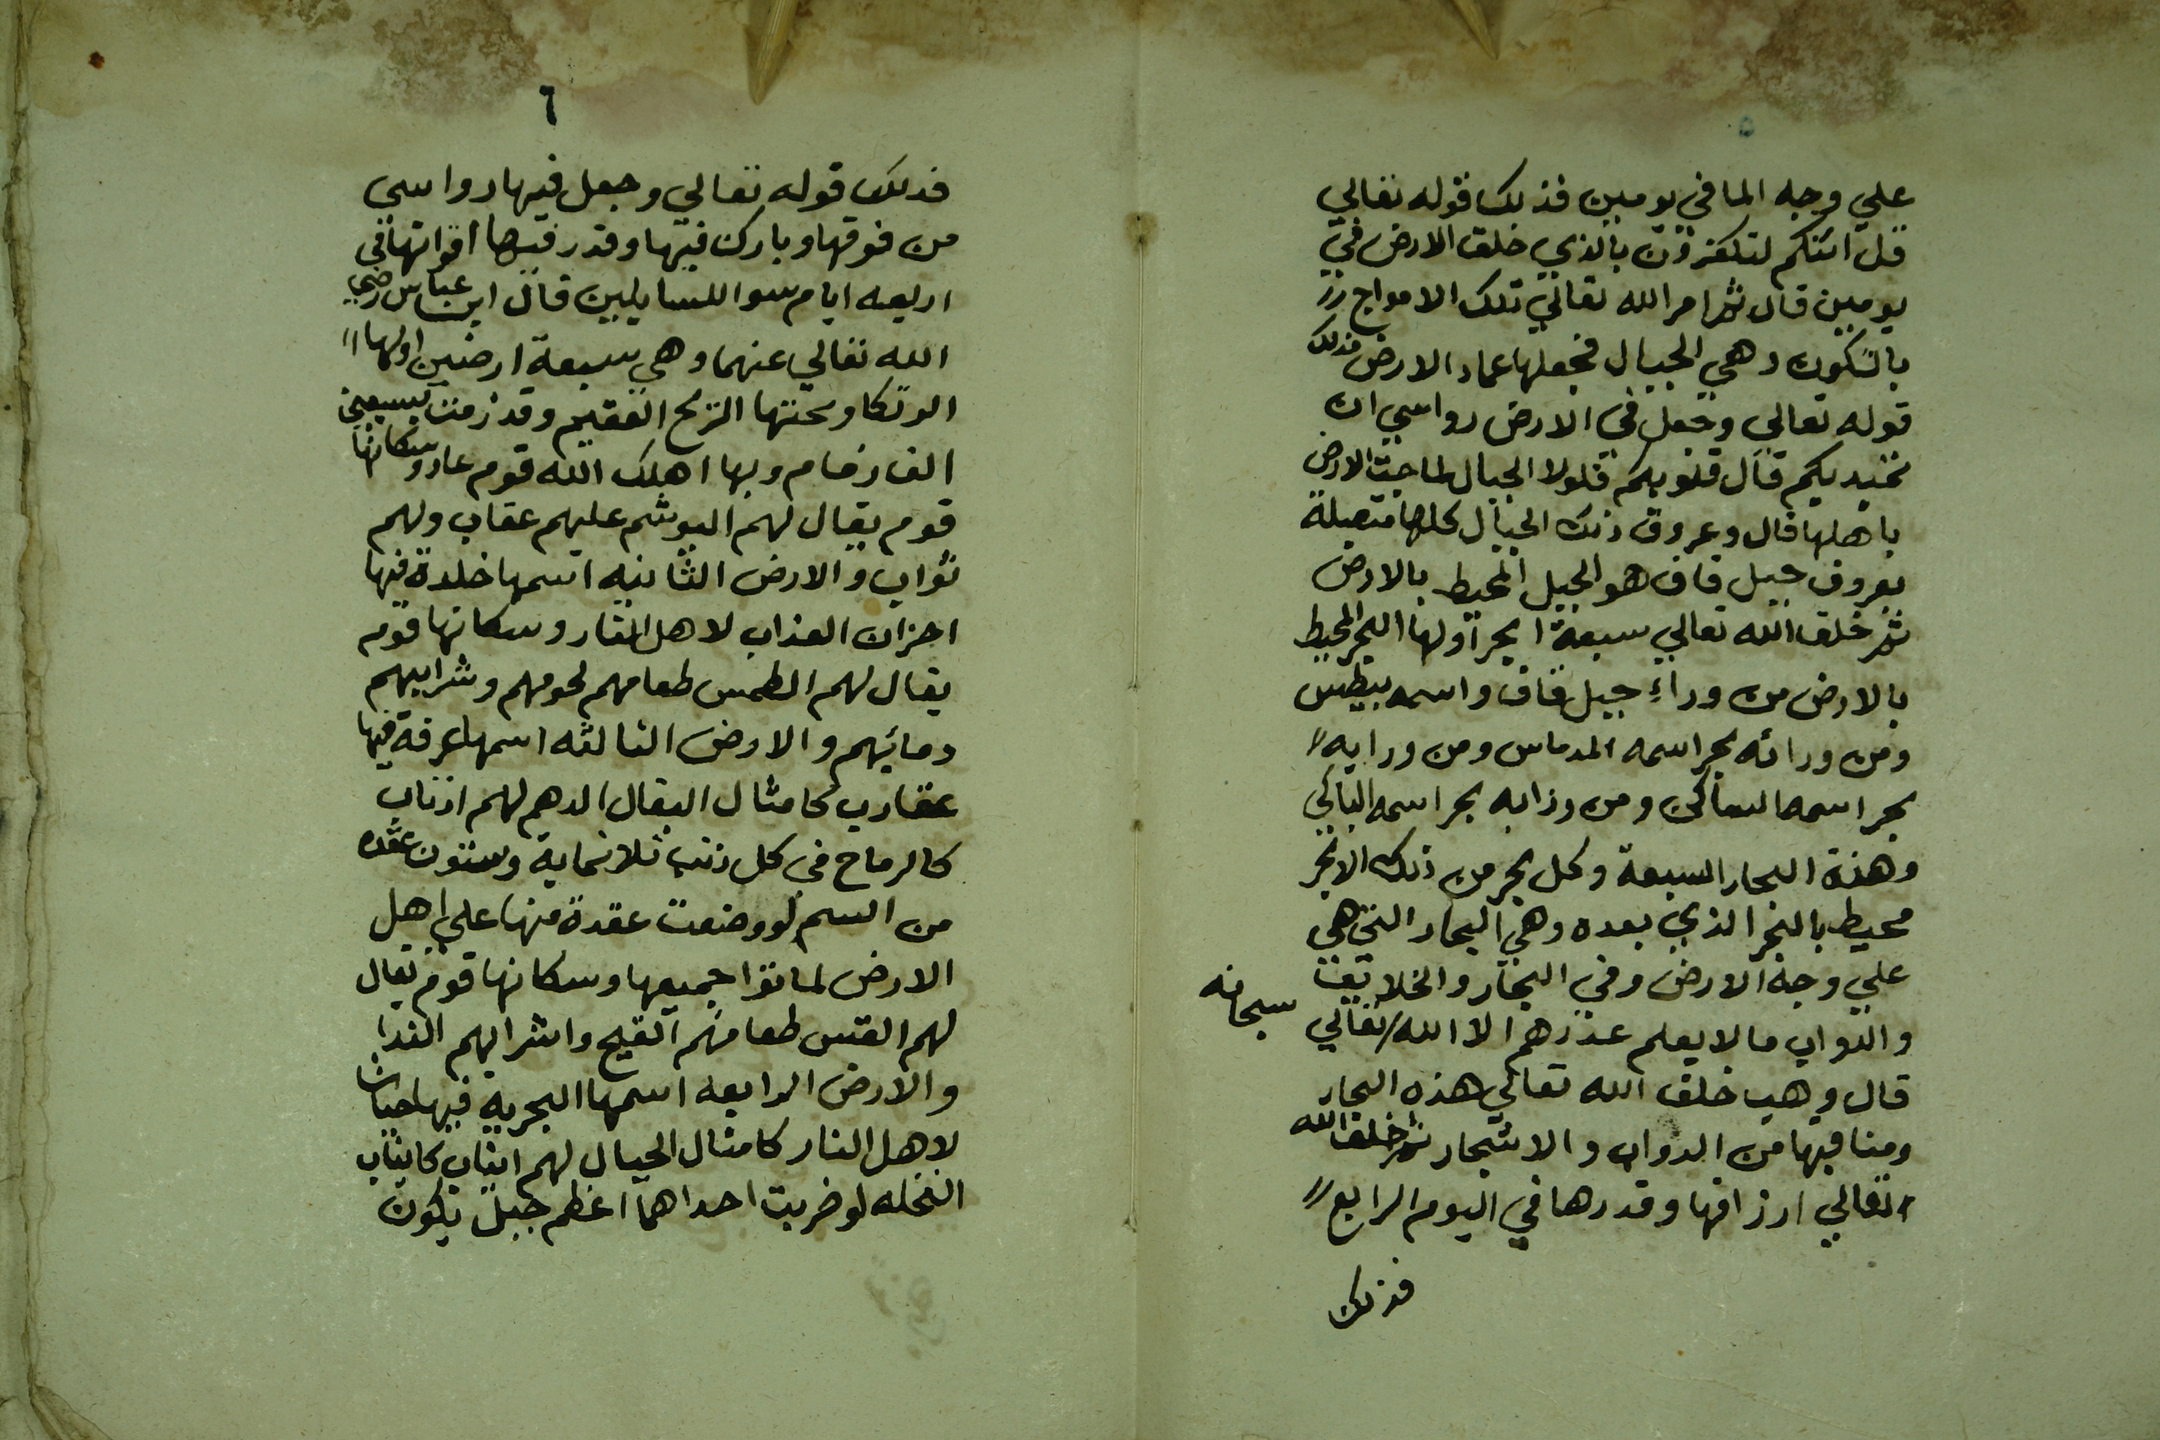 ٥
علي وجه الما في يومين فذلك قوله تعالي
قل ائنكم لتكفرون بالذي خلق الارض في
يومين قال ثم امر الله تعالي تلك الامواج
بالسكون وهي الجبال فجعلها عماد الارض فذلك
قوله تعالي وجعل في الارض رواسي ان
تميد بكم قال قلوبكم فلولا الجبال لماجت الارض
باهلها قال وعروق ذلك الجبال كلها متصلة
بعروق جبل قاف هو الجبل المحيط بالارض
ثم خلق الله تعالي سبعة ابحر اولها البحر المحيط
بالارض من وراء جبل قاف واسمه بيطس
ومن ورائه بحر اسمه المدماس ومن ورايه
بحر اسمه الساكن ومن ورايه بحر اسمه الباكي
وهذة البحار السبعة وكل بحر من ذلك الابحر
محيط بالبحر الذي بعده وهي البحار التي هي
علي وجه الارض وفي البحار والخلايق
والدواب ما لا يعلم عددهم الا الله تعالي سبحانه
قال وهب خلق الله تعالي هذه البحار
ومنافيها من الدواب والاشجار ثم خلق الله
تعالي ارزاقها وقدرها في اليوم الرابع
فذلك
٦
فذلك قوله تعالي وجعل فيها رواسي
من فوقها وبارك فيها وقدر فيها اقواتها في
اربعه ايام سوا للسايلين قال ابن عباس رضي
الله تعالي عنهما وهي سبعة ارضين اولها
الرتكا وتحتها الريح العقيم وقد زمت بسبعين
الف زمام وبها اهلك الله قوم عاد وسكانها
قوم يقال لهم البوشم عليهم عقاب ولهم
ثواب والارض الثانيه اسمها خلدة فيها
احزان العذاب لاهل النار وسكانها قوم
يقال لهم الطمس طعامهم لحومهم وشرابهم
دمائهم والارض الثالثه اسمها عرفة فيها
عقارب كامثال البغال الدهم لهم اذناب
كالرماح في كل ذنب ثلاثماية وستون عقده
من السم لو وضعت عقدة منها علي اهل
الارض لماتوا جميعها وسكانها قوم يقال
لهم القبس طعامهم القيح واشرابهم الندا
والارض الرابعه اسمها الجربة فيها حيات
لاهل النار كامثال الجبال لهم انياب كانياب
النخله لو ضربت احداهما اعظم جبل يكون